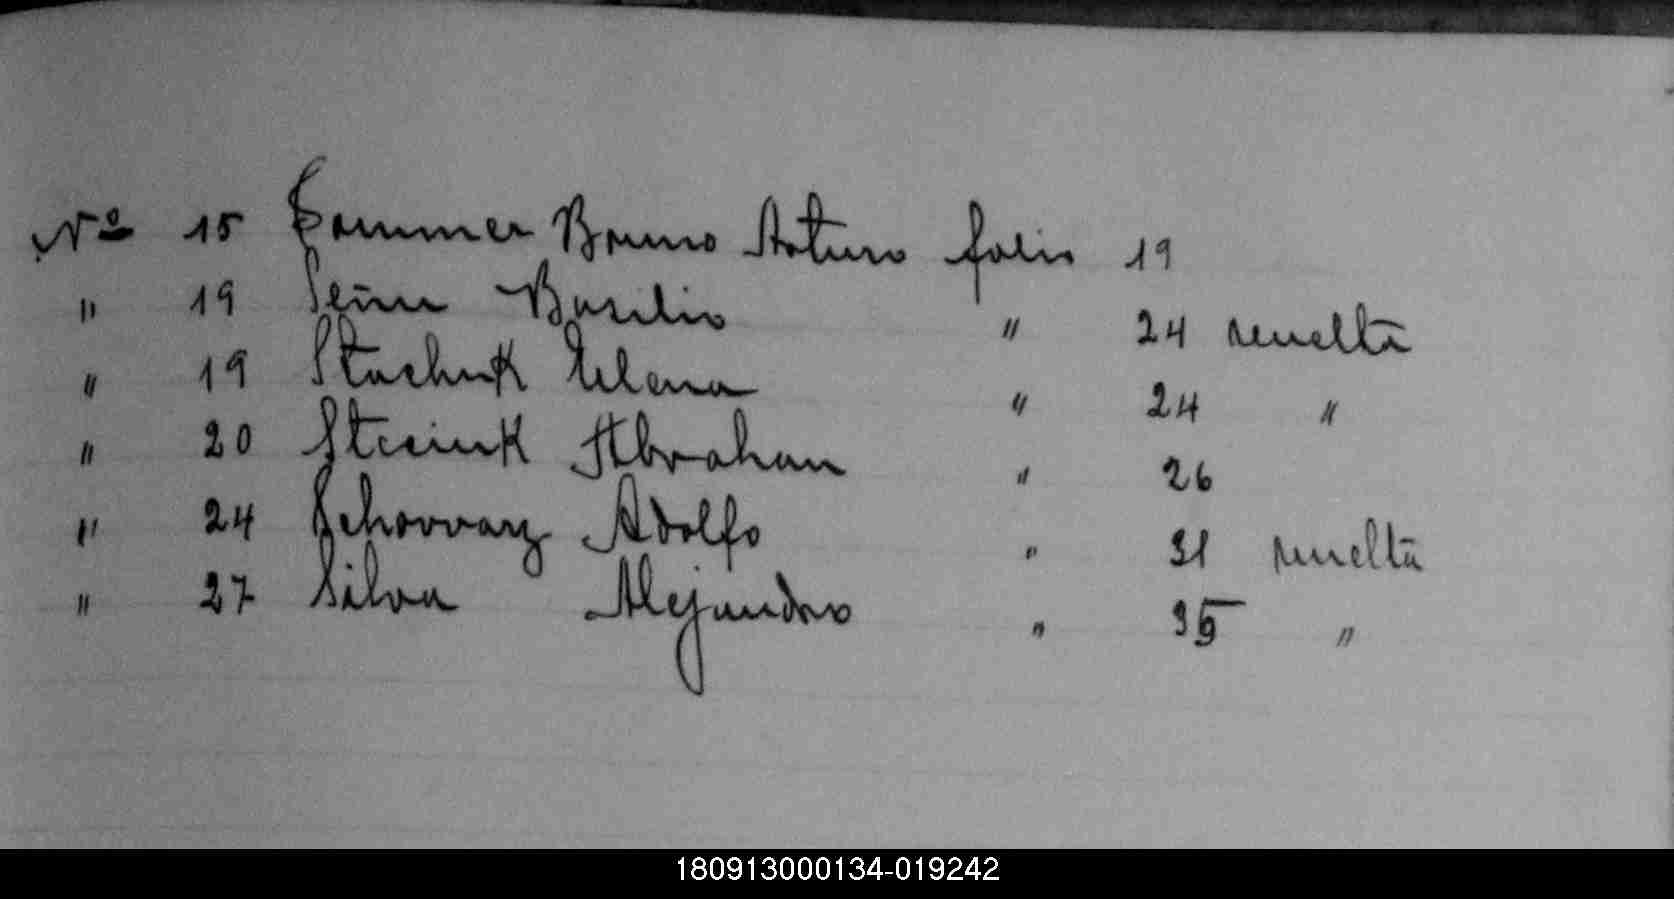 Nº 15 Sommer Bruno Arturo folio 19
" 19 Basilio " 24 vuelta
" 19 Stachuk Elena " 24 "
" 20 Abrahan " 26
" 24 Adolfo " 31 vuelta
" 27 Silva Alejandro " 35 "
180913000134-019242